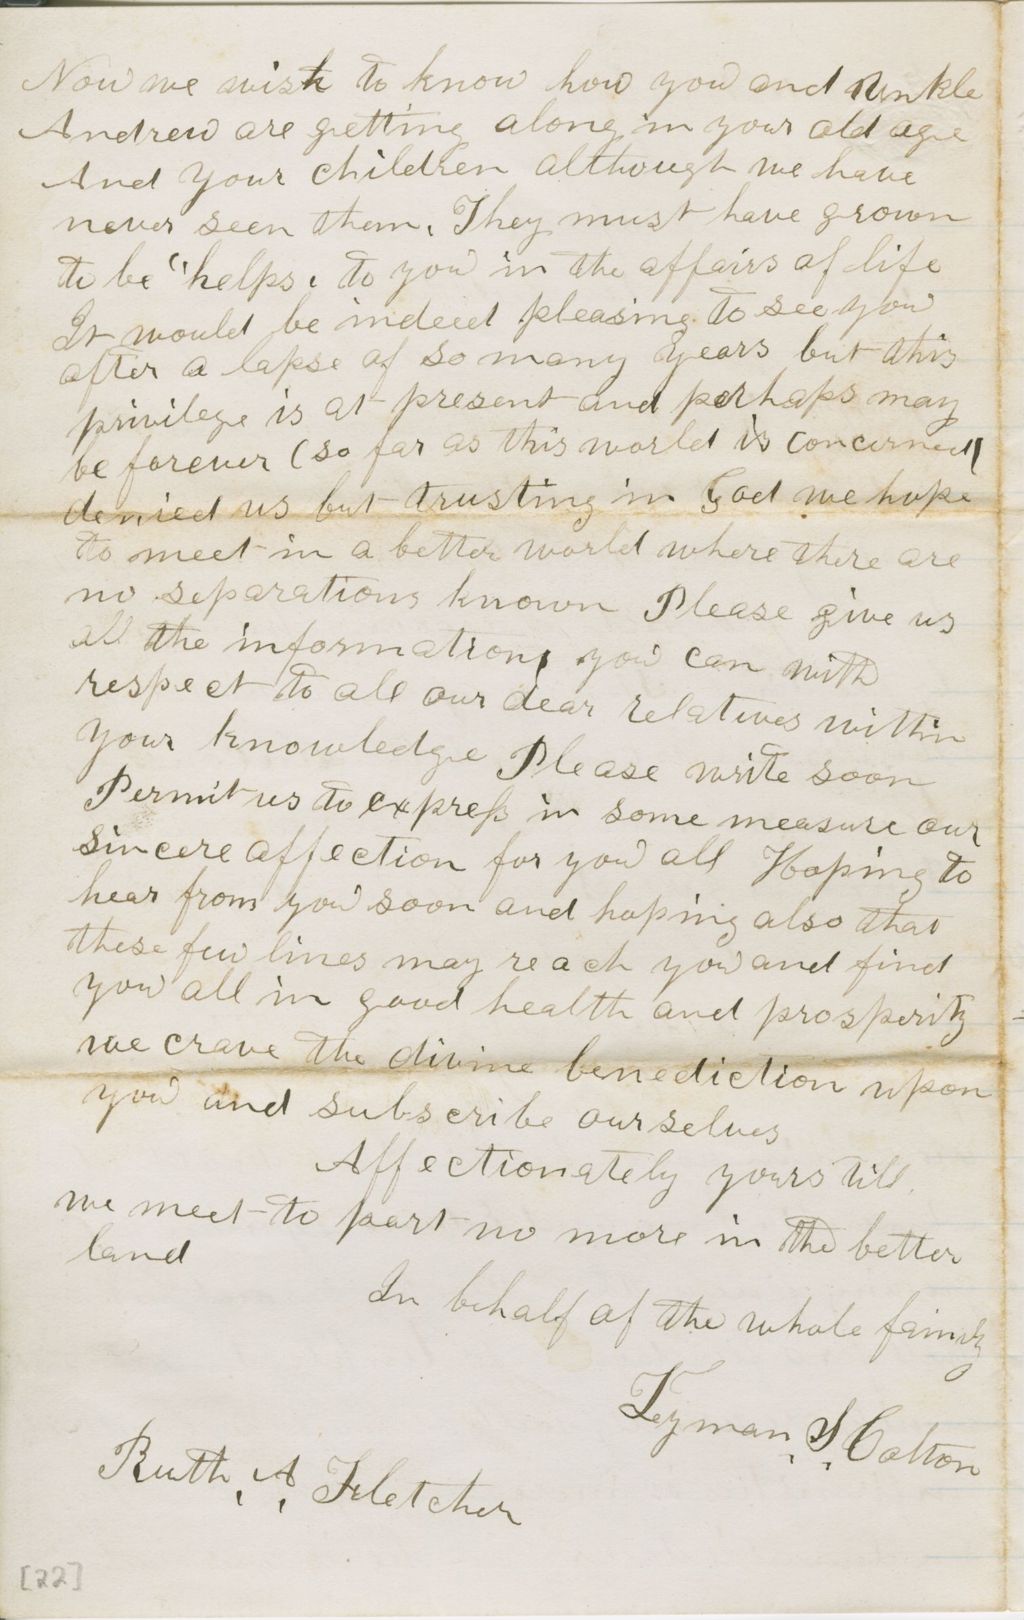 Now we wish to know how you and Unkle
Andrew are getting along in your old age
And your children although we have
never seen them. They must have grown
to be "helps. to you in the affairs of life
It would be indeed pleasing to see you
after a lapse of so many years but this
privilege is at present and perhaps may
be forever (so far as this world is concerned)
denied us but trusting in God we hope
to meet in a better world where there are
no separations known Please give us
all the information, you can with
respect to all our dear relatives within
your knowledge Please write soon
Permit us to express in some measure our
sincere affection for you all Hoping to
hear from you soon and hoping also that
these few lines may reach you and find
you all in good health and prosperity
we crave the divine benediction upon
you and subscribe ourselves
Affectionately yours till
we meet to part no more in the better
land
In behalf of the whole family
Lyman, S, Colton
Ruth, A, Fletcher
[22]